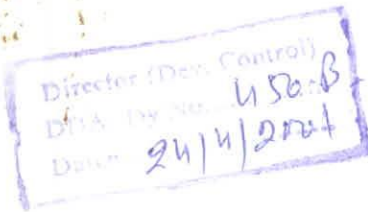 Director (Dev. Control)
DDA, Dy. No. 450-B
Date 24/4/